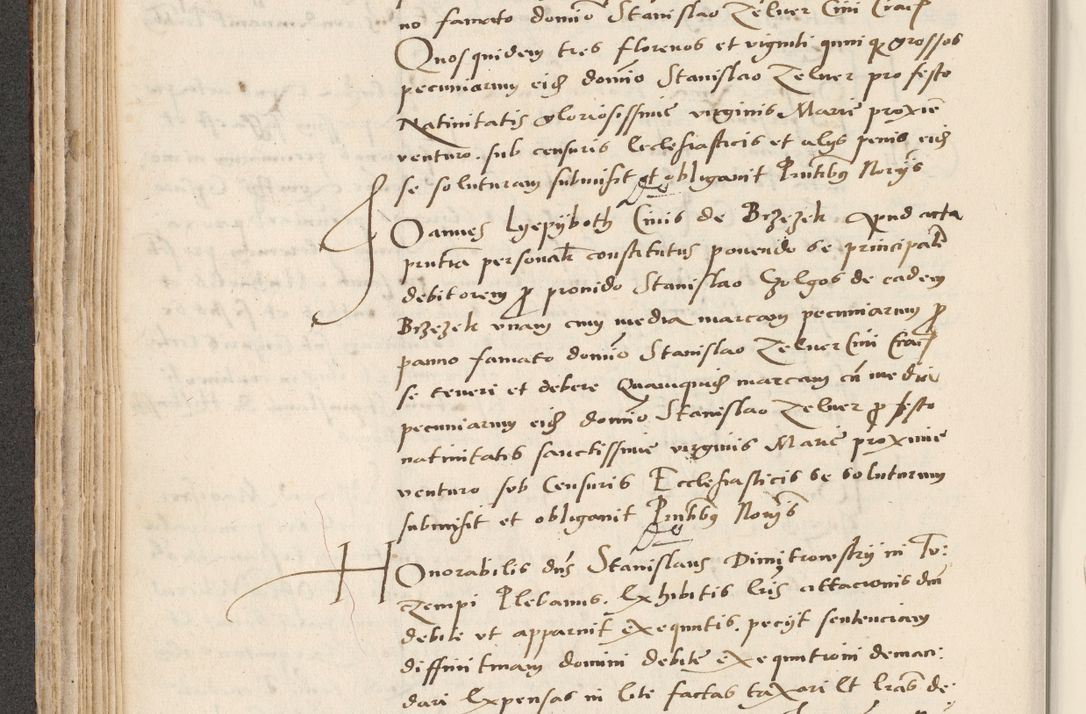 no famato domino Stanislao Zelner Civi Crac
Quosquidem tres florenos et viginti quinque grossos
pecuniarum eid domino Stanislao Zelner pro festo
Nativitatis gloriosissime virginis Marie proxime
venturo sub censuris Ecclesiasticis et alys penis eid
se soluturum submisit et obligavit Pntibus Norys
Joannes Lyepyboth Civis de Brzezek Apud acta
pntia personalr constitutus ponendo se principale
debitorem pro provido Stanislao Holgos de eadem
Brzezek vnam cum media marcam pecuniarum pro
panno famato domino Stanislao Zelner Civi Crac
se teneri et debere Quamquid marcam cu media
pecuniarum eid domino Stanislao Zelner pro festo
nativitatis sanctissime virginis Marie proxime
venturo sub Censuris Ecclesiasticis se soluturum
submisit et obligavit Pntibus Norys
Honorabilis dns Stanislaus Dimitrowsky in To:
Zempi Plebanus. Exhibitis lris cittacionis dni
debite vt apparuit exequutis. pecyt sentenciam
diffinitivam domini debite exequutioni deman:
dari Expensas in lite factas taxari Et lras de: